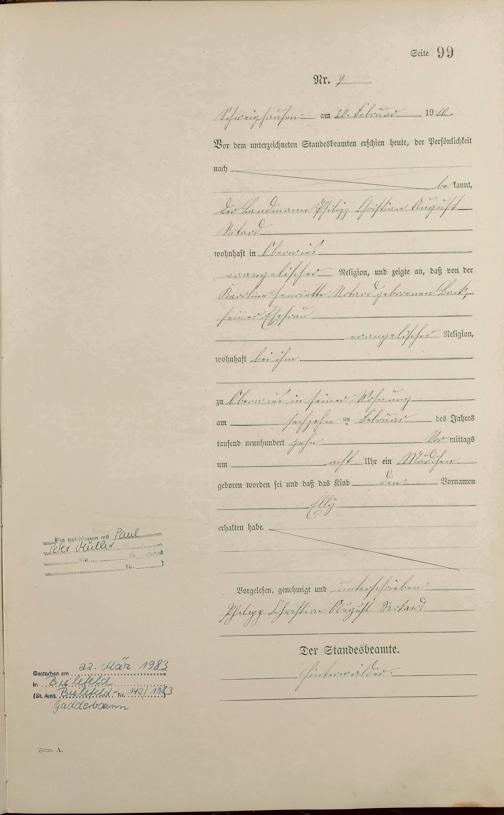 Seite 99
Nr. 9
Schweighausen am 22. Februar 1910.
Vor dem unterzeichneten Standesbeamten erschien heute, der Persönlichkeit
nach
be kannt,
der Landmann Philipp Christian August
wohnhaft in Oberwies
evangelischer Religion, und zeigte an, daß von der
Karoline Henriette geborenen
seiner Ehefrau
evangelischer Religion,
wohnhaft bei ihm
zu Oberwies in seiner Wohnung
am sechzehn ten Februar des Jahres
tausend neunhundert zehn Vor mittags
um acht Uhr ein Mädchen
geboren worden sei und daß das Kind den Vornamen
Elly
erhalten habe.
Vorgelesen, genehmigt und unterschrieben
Philipp Christian August
Der Standesbeamte.
Hinterwälder.
Paul
Peter Müller
Gestorben am 22. März 1983
in Bielefeld
(St. Amt Bielefeld- Nr. 142/1983
Gadderbaum
Form. A.